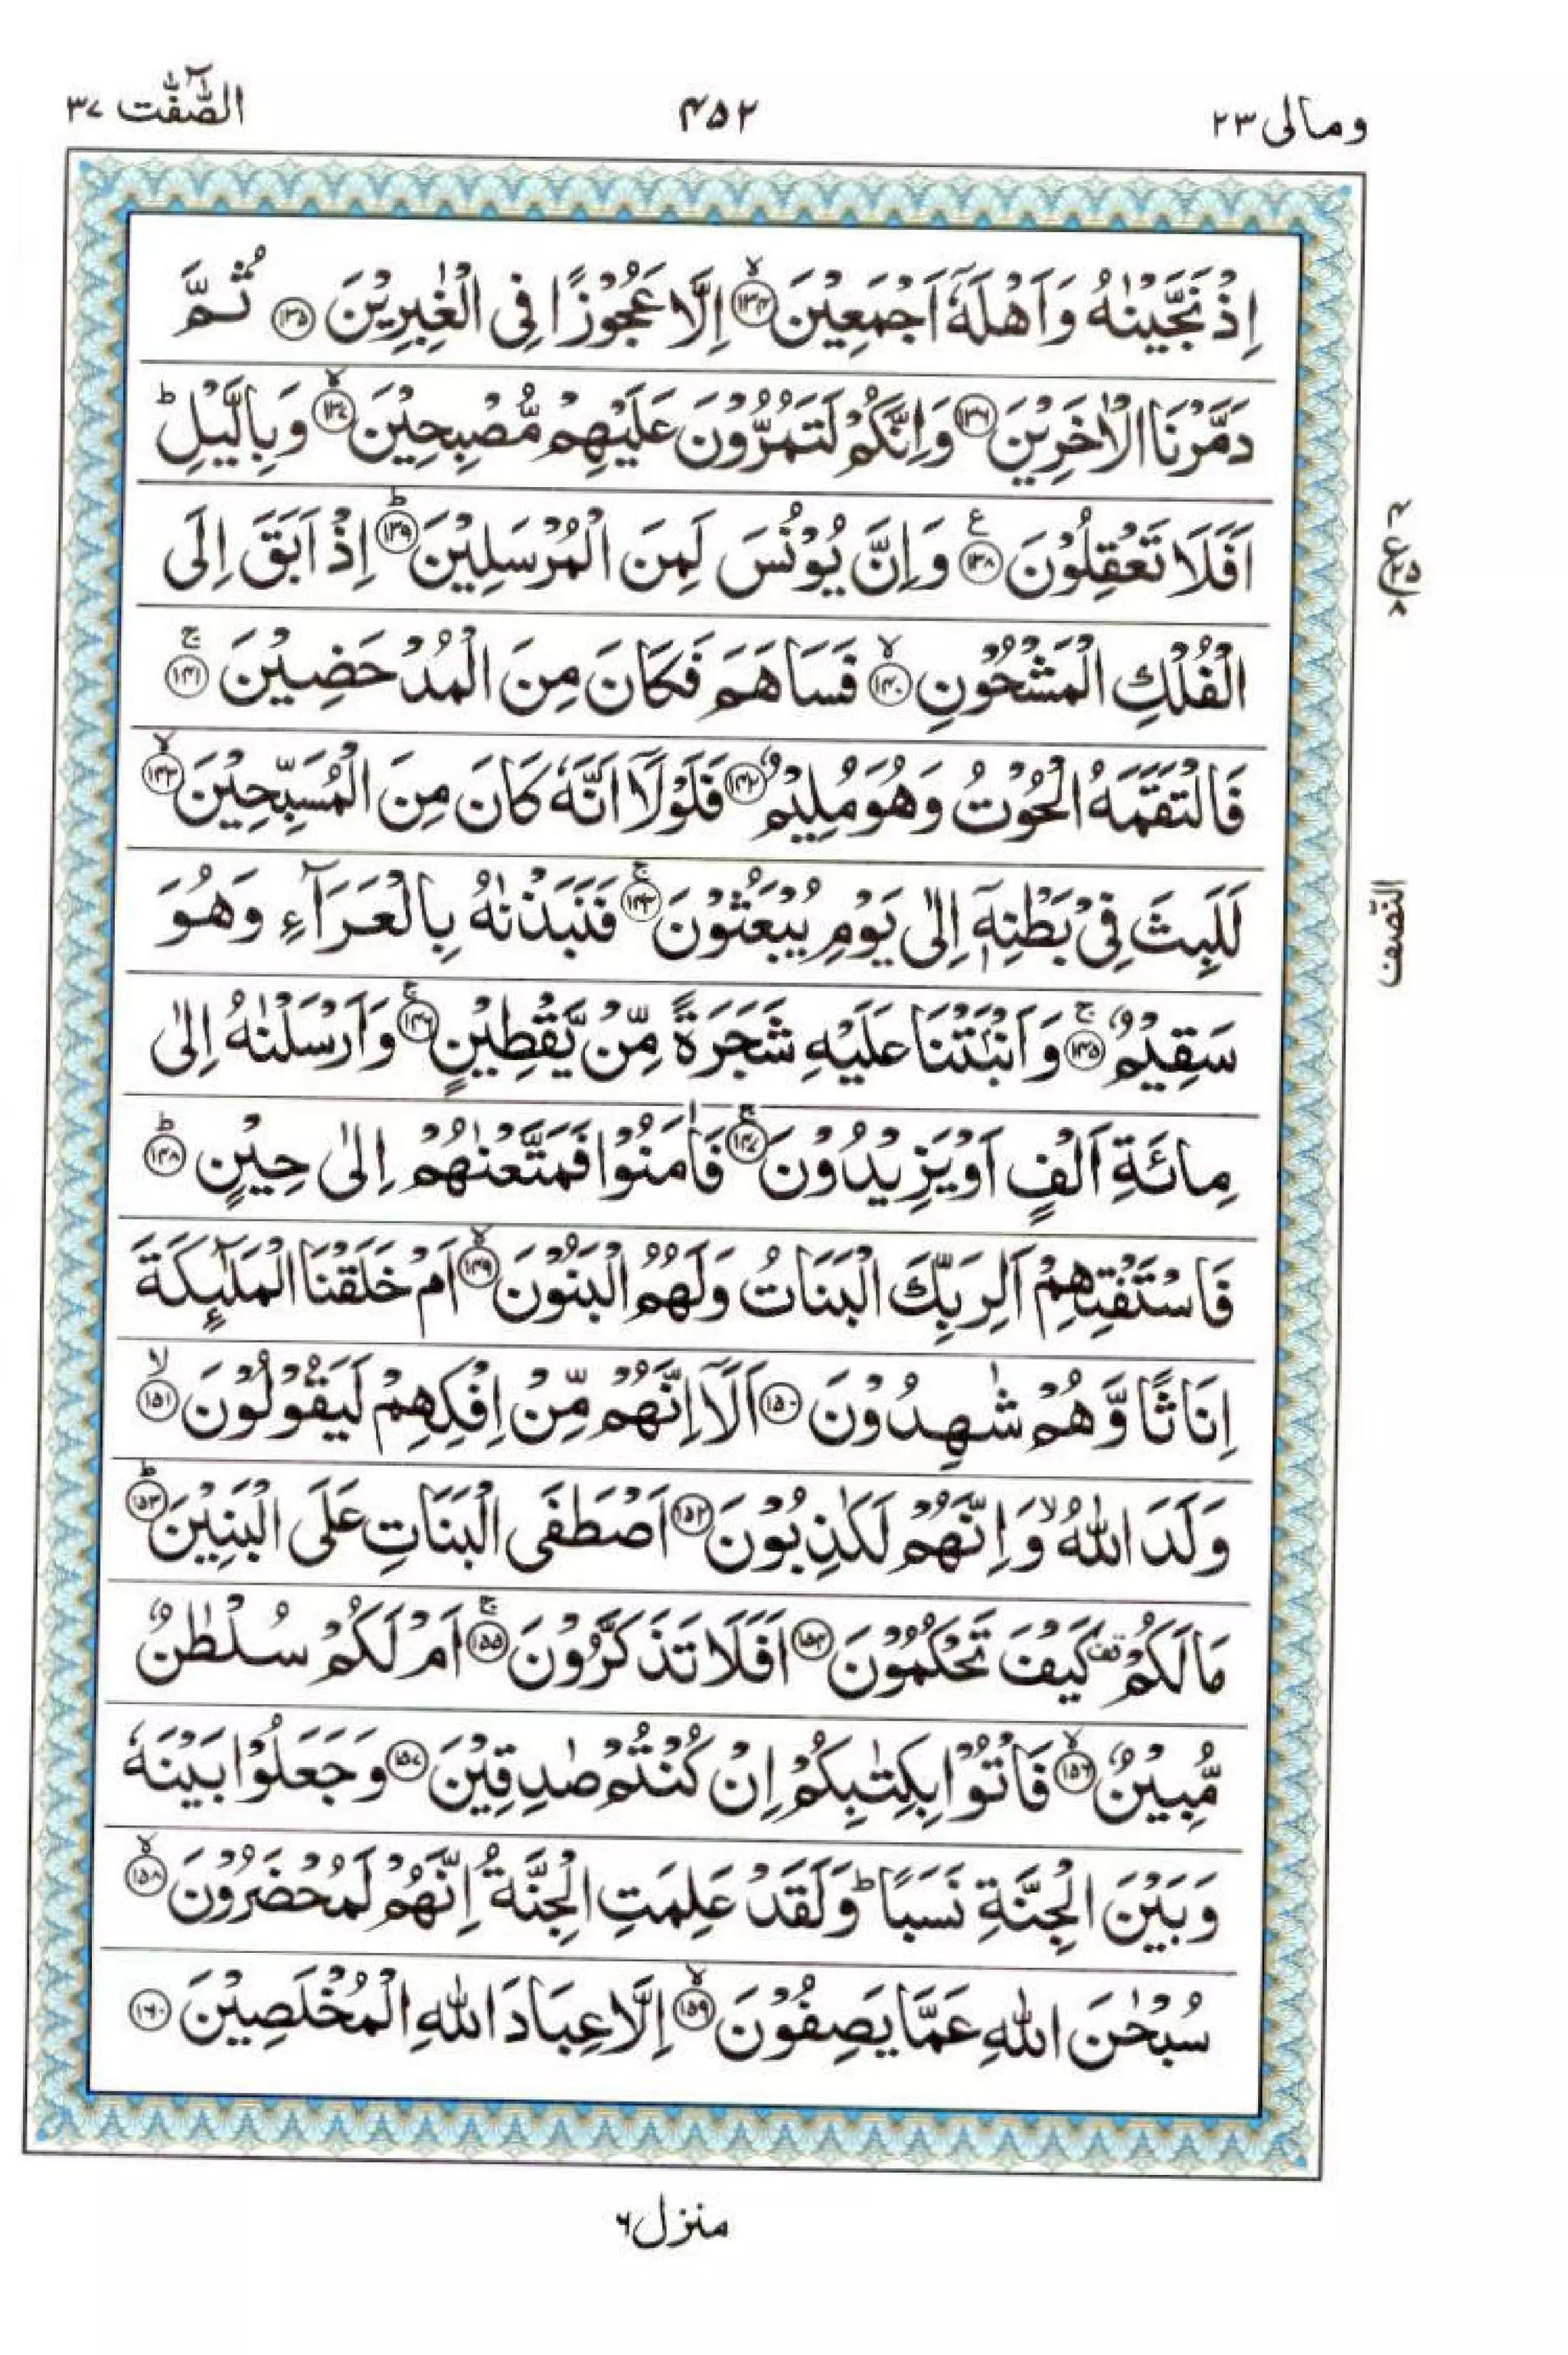 ومالی ۲۳
۴۵۲
الصّٰٓفّٰت ۳۷
اِذْ نَجَّیْنٰهُ وَ اَهْلَهٗۤ اَجْمَعِیْنَ ۙ﴿۱۳۴﴾ اِلَّا عَجُوْزًا فِی الْغٰبِرِیْنَ ﴿۱۳۵﴾ ثُمَّ
دَمَّرْنَا الْاٰخَرِیْنَ ﴿۱۳۶﴾ وَ اِنَّكُمْ لَتَمُرُّوْنَ عَلَیْهِمْ مُّصْبِحِیْنَ ۙ﴿۱۳۷﴾ وَ بِالَّیْلِ ؕ
اَفَلَا تَعْقِلُوْنَ ﴿۱۳۸﴾ ع وَ اِنَّ یُوْنُسَ لَمِنَ الْمُرْسَلِیْنَ ؕ﴿۱۳۹﴾ اِذْ اَبَقَ اِلَی
ع
۴
۲۵
۸
الْفُلْكِ الْمَشْحُوْنِ ۙ﴿۱۴۰﴾ فَسَاهَمَ فَكَانَ مِنَ الْمُدْحَضِیْنَ ۚ﴿۱۴۱﴾
فَالْتَقَمَهُ الْحُوْتُ وَ هُوَ مُلِیْمٌ ﴿۱۴۲﴾ فَلَوْلَاۤ اَنَّهٗ كَانَ مِنَ الْمُسَبِّحِیْنَ ۙ﴿۱۴۳﴾
لَلَبِثَ فِیْ بَطْنِهٖۤ اِلٰی یَوْمِ یُبْعَثُوْنَ ۚ﴿۱۴۴﴾ فَنَبَذْنٰهُ بِالْعَرَآءِ وَ هُوَ
النّصف
سَقِیْمٌ ۚ﴿۱۴۵﴾ وَ اَنْۢبَتْنَا عَلَیْهِ شَجَرَةً مِّنْ یَّقْطِیْنٍ ۚ﴿۱۴۶﴾ وَ اَرْسَلْنٰهُ اِلٰی
مِائَةِ اَلْفٍ اَوْ یَزِیْدُوْنَ ۚ﴿۱۴۷﴾ فَاٰمَنُوْا فَمَتَّعْنٰهُمْ اِلٰی حِیْنٍ ؕ﴿۱۴۸﴾
فَاسْتَفْتِهِمْ اَلِرَبِّكَ الْبَنَاتُ وَ لَهُمُ الْبَنُوْنَ ۙ﴿۱۴۹﴾ اَمْ خَلَقْنَا الْمَلٰٓىِٕكَةَ
اِنَاثًا وَّ هُمْ شٰهِدُوْنَ ﴿۱۵۰﴾ اَلَاۤ اِنَّهُمْ مِّنْ اِفْكِهِمْ لَیَقُوْلُوْنَ ۙ﴿۱۵۱﴾
وَلَدَ اللّٰهُ ۙ وَ اِنَّهُمْ لَكٰذِبُوْنَ ﴿۱۵۲﴾ اَصْطَفَی الْبَنَاتِ عَلَی الْبَنِیْنَ ؕ﴿۱۵۳﴾
مَا لَكُمْ قف كَیْفَ تَحْكُمُوْنَ ﴿۱۵۴﴾ اَفَلَا تَذَكَّرُوْنَ ۚ﴿۱۵۵﴾ اَمْ لَكُمْ سُلْطٰنٌ
مُّبِیْنٌ ۙ﴿۱۵۶﴾ فَاْتُوْا بِكِتٰبِكُمْ اِنْ كُنْتُمْ صٰدِقِیْنَ ﴿۱۵۷﴾ وَ جَعَلُوْا بَیْنَهٗ
وَ بَیْنَ الْجِنَّةِ نَسَبًا ؕ وَ لَقَدْ عَلِمَتِ الْجِنَّةُ اِنَّهُمْ لَمُحْضَرُوْنَ ۙ﴿۱۵۸﴾
سُبْحٰنَ اللّٰهِ عَمَّا یَصِفُوْنَ ۙ﴿۱۵۹﴾ اِلَّا عِبَادَ اللّٰهِ الْمُخْلَصِیْنَ ﴿۱۶۰﴾
منزل ۶